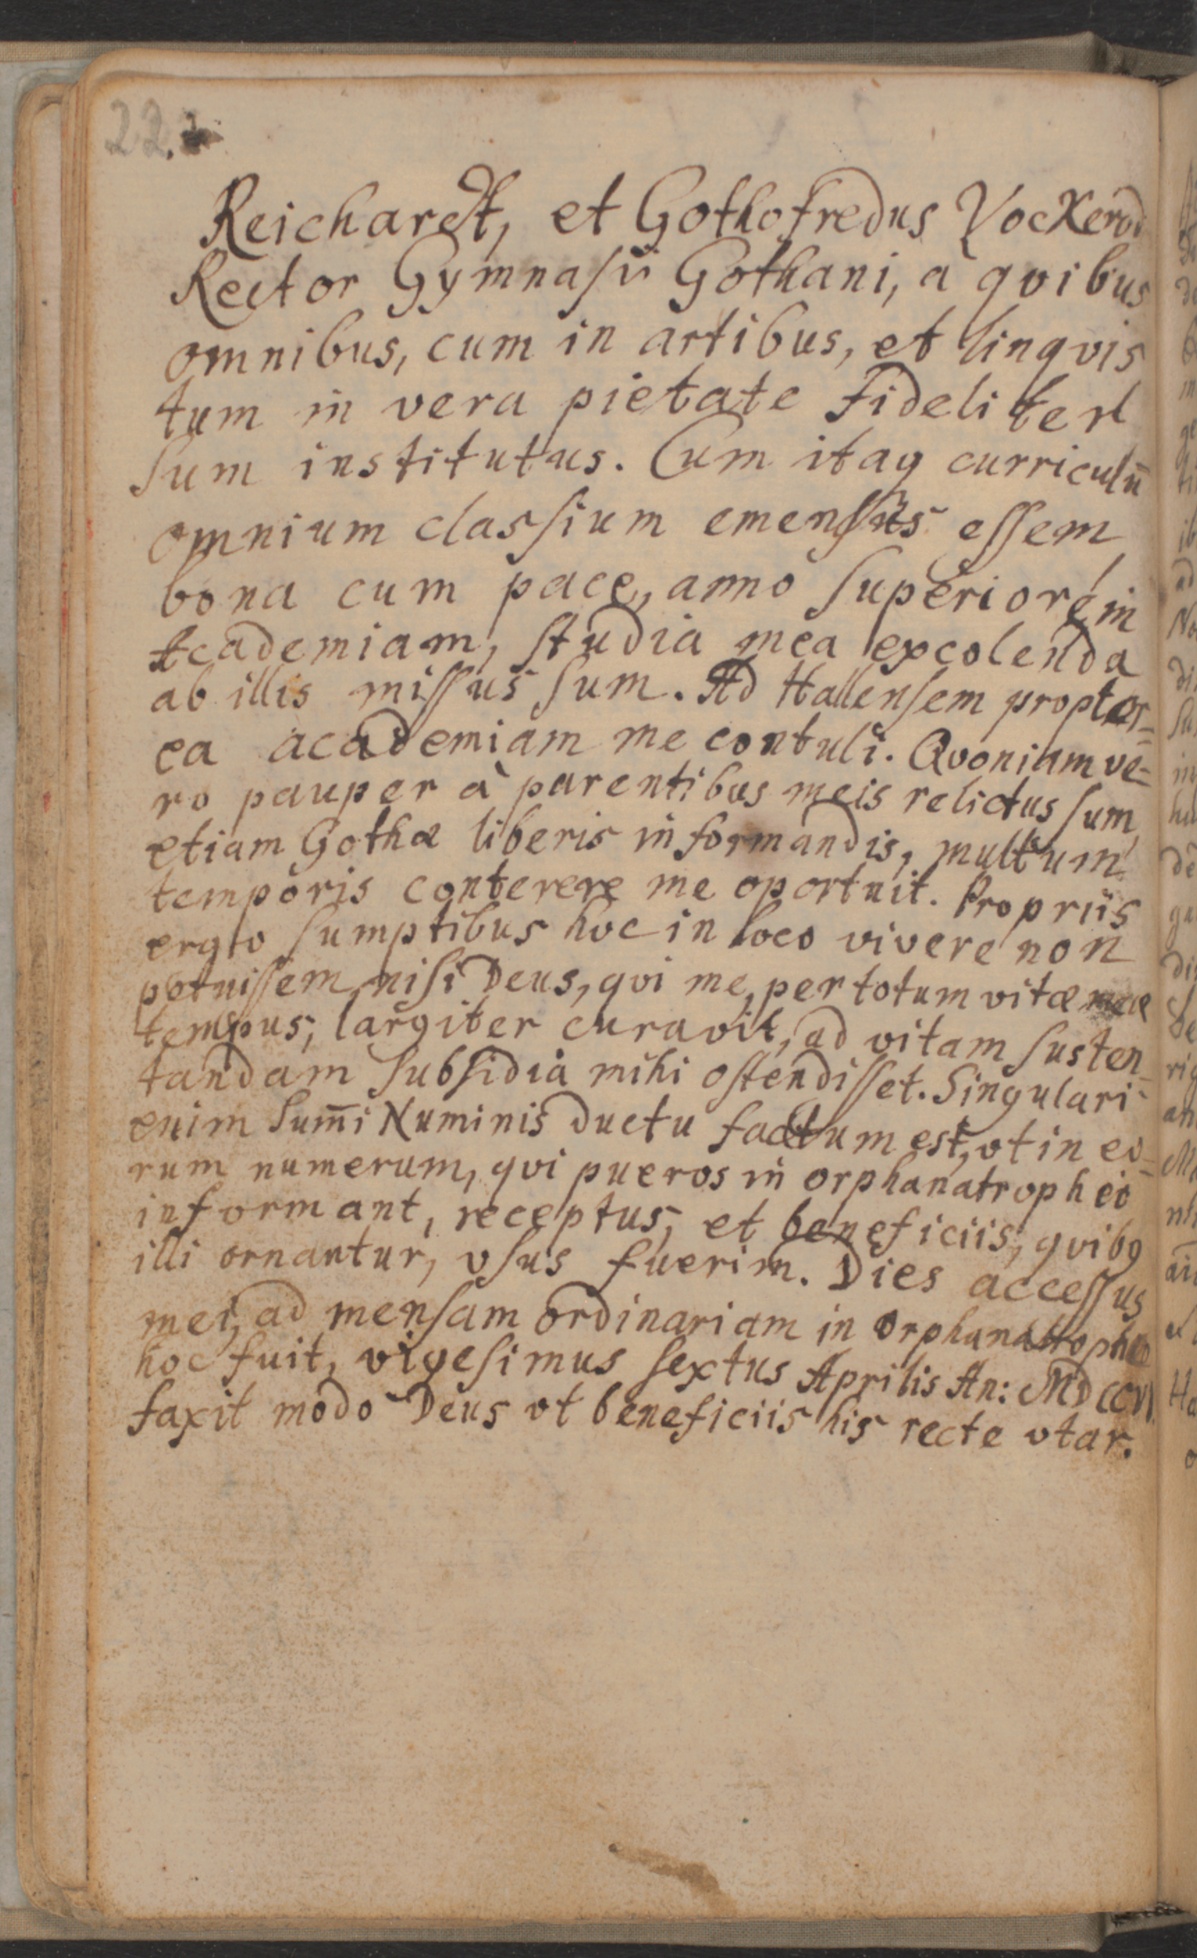 22.
Reichardt, et Gothofredus Vockerod
Rector Gymnasii Gothani, a qvibus
omnibus, cum in artibus, et lingvis
tum in vera pietate fideliter
sum institutus. Cum itaq curriculū
omnium classium emensus essem
bona cum pace, anno superiore, in
Academiam, studia mea excolenda
ab illis missus sum. Ad Hallensem propter=
ea academiam me contuli. Qvoniam ve=
ro pauper à parentibus meis relictus sum,
etiam Gothæ liberis informandis, multum
temporis conterere me oportuit. Propriis
ergo sumptibus hoc in loco vivere non
potuissem, nisi Deus, qvi me, per totum vitæ meæ
tempus, largiter curavit, ad vitam susten=
tandam subsidia mihi ostendisset. Singulari
enim sum̄i Numinis ductu factum est, vt in eo=
rum numerum, qvi pueros in orphanatropheo
informant, receptus, et beneficiis, qvibq
illi ornantur, vsus fuerim. Dies accessus
mei, ad mensam ordinariam in orphanatropheo
hoc fuit, vigesimus sextus Aprilis An: MDCCVI
faxit modo Deus vt beneficiis his recte vtar.